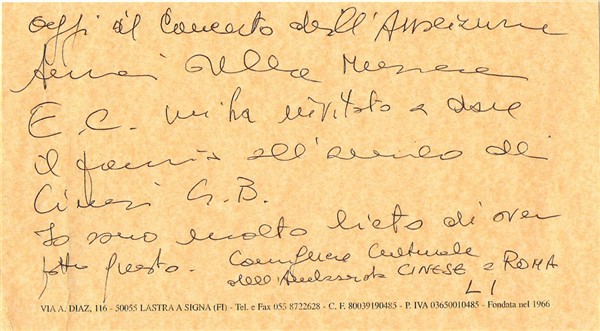 oggi al Concerto dell'Associazione
Amici della Musica
E.C. mi ha invitato a dare
il premio all'amico di
Cinesi G.B.
Io sono molto lieto di aver
fatto questo. Consigliere Culturale
dell'Ambasciata CINESE a ROMA
LI
VIA A. DIAZ, 116 - 50055 LASTRA A SIGNA (FI) - Tel. e Fax 055 8722628 - C. F. 80039190485 - P. IVA 03650010485 - Fondata nel 1966